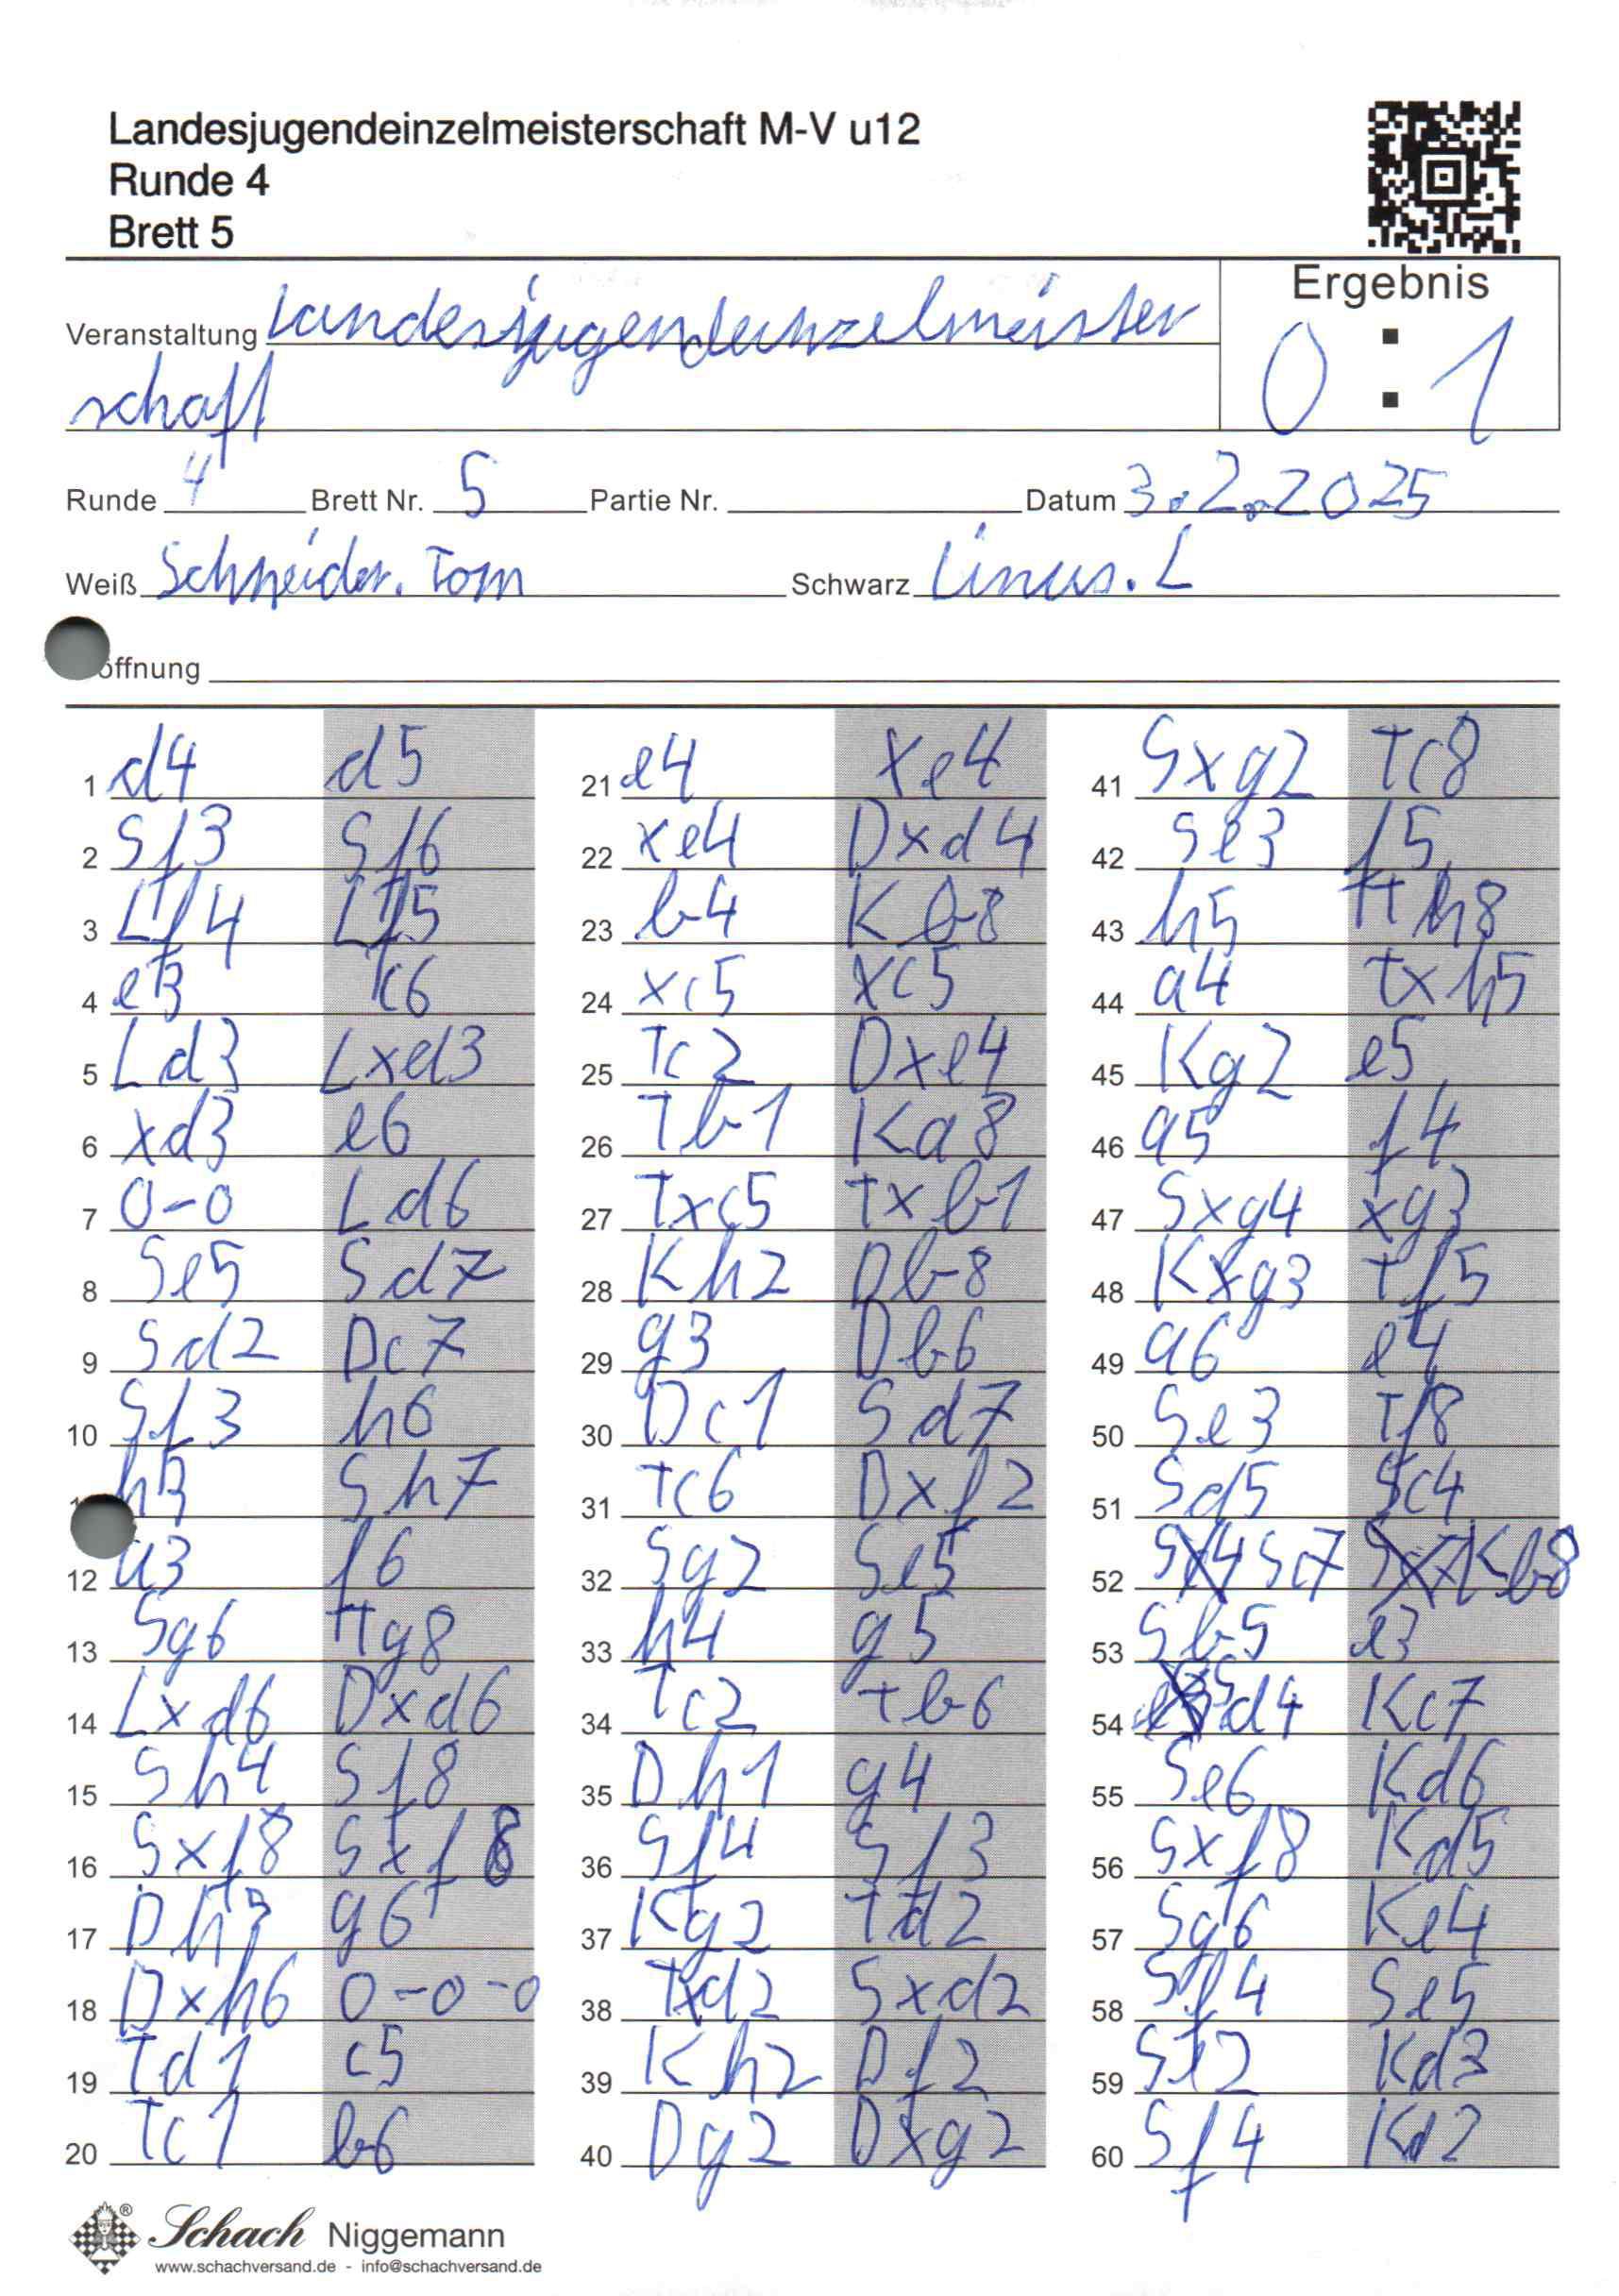 Landesjugendeinzelmeisterschaft M-V u12
Runde 4
Brett 5
Ergebnis
0 : 1
Veranstaltung Landesjugendeinzelmeister
schaft
Runde 4 Brett Nr. 5 Partie Nr. Datum 3.2.2025
Weiß Schneider. Tom Schwarz Linus. L
öffnung
1 d4 d5
2 Sf3 Sf6
3 Lf4 Lf5
4 e3 c6
5 Ld3 Lxd3
6 xd3 e6
7 0-0 Ld6
8 Se5 Sd7
9 Sd2 Dc7
10 Sf3 h6
h3 Sh7
12 a3 f6
13 Sg6 Tg8
14 Lxd6 Dxd6
15 Sh4 Sf8
16 Sxf8 Sxf8
17 Dh5 g6
18 Dxh6 0-0-0
19 Td1 c5
20 Tc1 b6
21 e4 xe4
22 xe4 Dxd4
23 b4 Kb8
24 xc5 xc5
25 Tc2 Dxe4
26 Tb1 Ka8
27 Txc5 txb1
28 Kh2 Db8
29 g3 Db6
30 Dc1 Sd7
31 Tc6 Dxf2
32 Sg2 Se5
33 h4 g5
34 Tc2 tb6
35 Dh1 g4
36 Sf4 Sf3
37 Kg2 td2
38 Txd2 Sxd2
39 Kh2 Df2
40 Dg2 Dxg2
41 Sxg2 Tc8
42 Se3 f5
43 h5 th8
44 a4 txh5
45 Kg2 e5
46 a5 f4
47 Sxg4 xg3
48 Kxg3 tf5
49 a6 e4
50 Se3 Tf8
51 Sd5 Sc4
52 Sc7 Kb8
53 Sb5 e3
54 Sd4 Kc7
55 Se6 Kd6
56 Sxf8 Kd5
57 Sg6 Ke4
58 Sf4 Se5
59 Se2 Kd3
60 Sf4 Kd2
Schach Niggemann
www.schachversand.de - info@schachversand.de